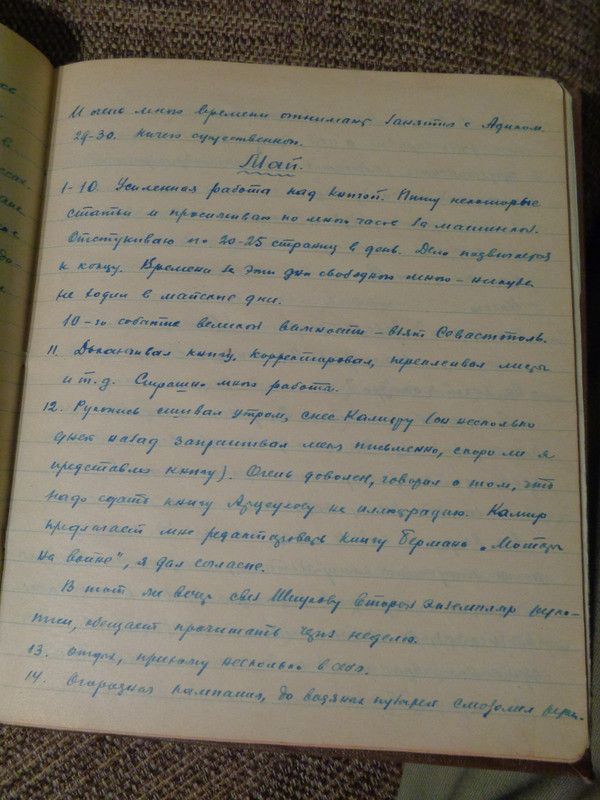 И очень много времени отнимают занятия с Адиком.
29-30. Ничего существенного.
Май.
1-10. Усиленная работа над книгой. Пишу некоторые
статьи и просиживаю по много часов за машинкой.
Отстукиваю по 20-25 страниц в день. Дело подвигается
к концу. Времени в эти дни свободного много - никуда
не ходил в майские дни.
10-го событие великой важности - взят Севастополь.
11. Доканчивал книгу, корректировал, переклеивал листы
и т.д. Страшно много работы.
12. Рукопись сшивал утром, снес Камиру (он несколько
дней назад запрашивал меня письменно, скоро ли я
представлю книгу). Очень доволен, говорил о том, что
надо сдать книгу Арцеулову на иллюстрацию. Камир
предлагает мне редактировать книгу Германа "Моторы
на войне", я дал согласие.
В тот же вечер свез Шиукову второй экземпляр руко-
писи, обещает прочитать через неделю.
13. Отдых, прихожу несколько в себя.
14. Огородная кампания, до водяных пузырей смозолил руки.